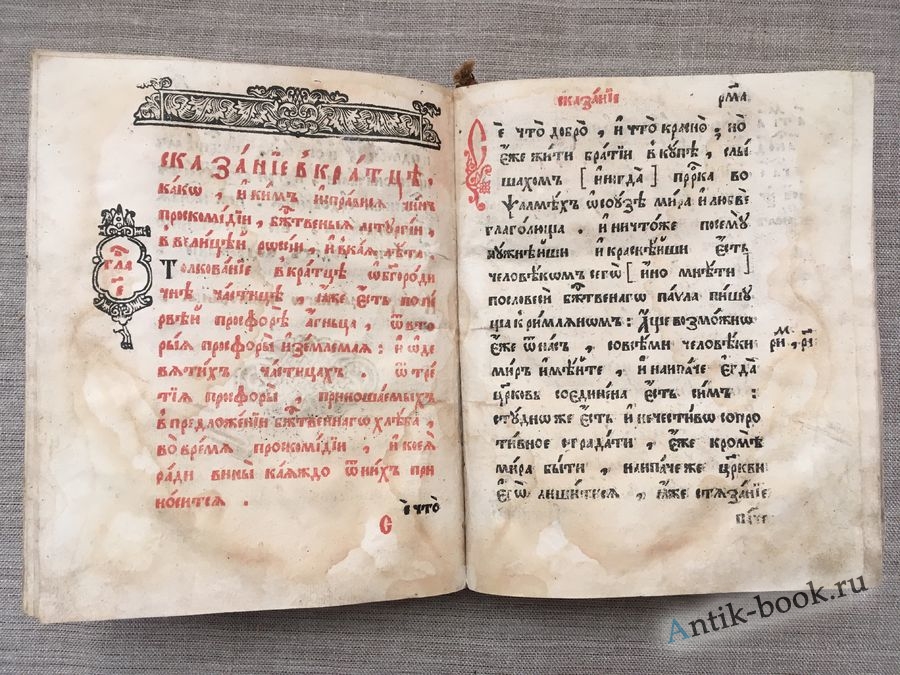 СКАЗА́НІЕ В́КРА́ТЦѢ .
ка́кѡ , и҆ ки́мъ и҆спра́вися чи́нъ
проскомі́дїи , бж҃твеныѧ лїтꙋргі́и ,
и҆ в вели́цѣй рѡссі́и , и҆ в каѧ̀ лѣ́та
Толкова́нїе в кра́тцѣ ѡ҆ бг҃оро́ди
чнѣ ча́стицѣ , ꙗ҆́же є҆́сть по пе́
рвѣй просфорѣ̀ а҆́гньца , ѿ вто
ры́ѧ просфоры̀ и҆зе́млемаѧ : и҆ ѡ҆ де
вѧти́хъ ча́стицахъ ѿ тре́
тїѧ просфоры̀ , приноша́емыхъ
в предложе́нїи бж҃твеннагѡ хлѣ́ба ,
во вре́мѧ проскомі́дїи , и҆ коеѧ̀
ра́ди вины̀ каѧ́ждо ѿ ни́хъ при
но́ситсѧ .
гла
С
е҆ что̀
СКАЗА́НІЕ
рм҃а
Сѐ что̀ добро̀ , и҆ что̀ красно̀ , но
є҆́же жи́ти бра́тїи в кꙋ́пѣ , слы́
шахомъ [ и҆ногда̀ ] прⷪ҇ро́ка во
ѱалмѣ́хъ ѡ҆ сою́зѣ ми́ра и҆ любвѐ
глаго́люща . и҆ ничто́же посемꙋ̀
нꙋжнѣ́йши и҆ краснѣ́йши є҆́сть
человѣ́кѡмъ сегѡ̀ [ и҆́но мнѣ́ти ]
по словесѝ бж҃твенагѡ па́vла пи́шꙋ
ща к ри́млѧнѡмъ : А҆́ще возмо́жнѡ
є҆́же ѿ ва́съ , со всѣ́ми человѣ́ки
ри҃ , гі
ми́ръ и҆мѣ́йте , и҆ наипа́че є҆гда̀
цр҃ковь соедине́на є҆́сть си́мъ :
стꙋ́дно же є҆́сть и҆ нечести́вѡ сопро
ти́вное страда́ти , є҆́же кромѣ̀
ми́ра бы́ти , наипа́че же цр҃кви
є҆гѡ̀ лиши́тисѧ , ꙗ҆́же стѧза́нїе
Antik-book.ru